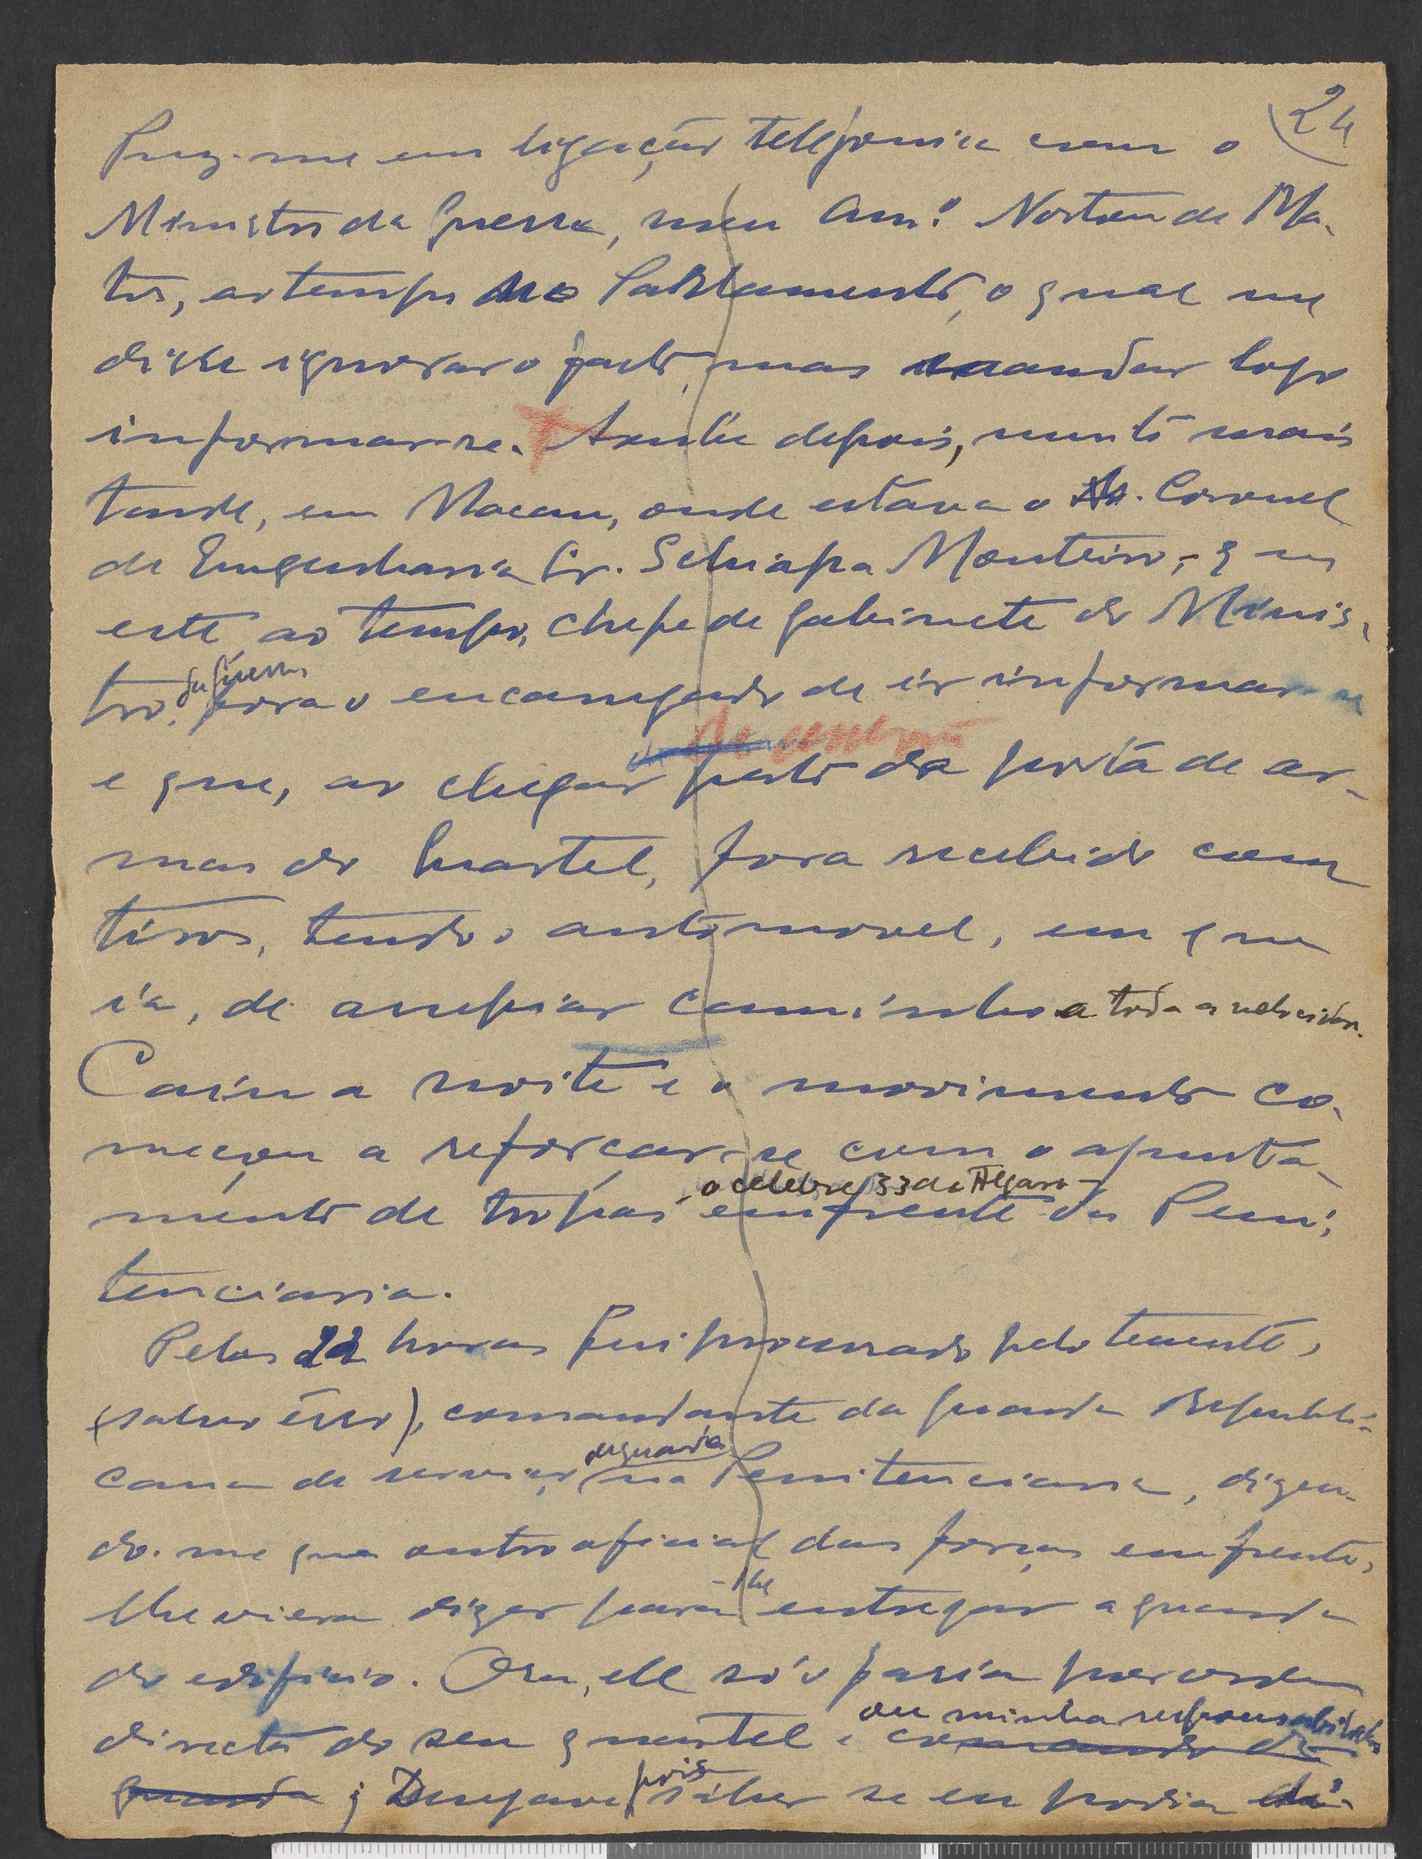 24
Puz-me em ligação telefonica com o
Ministro da Guerra, meu Am.º Norton de Ma-
tos, ao tempo no Parlamento, o qual me
disse ignorar o facto, mas mandar logo
informar-se. depois, muito mais
tarde, em Macau, onde estava o Coronel
de Engenharia Sr. Schiapa Monteiro, q
este, ao tempo, chefe de gabinete do Minis-
tro da Guerra, fora o encarregado de ir informar-se
e que, ao chegar perto da porta de ar-
mas do quartel, fora recebido com
tiros, tendo o automovel, em que
ia, de arrepiar caminho a toda a velocida
Caíu a noite e o movimento co-
meçou a reforçar-se com o aponta-
mento de tropas o celebre 33 de
em frente da Peni-
tenciaria.
Pelas 22 horas fui procurado pelo tenente,
(salvo erro), comandante da guarda Republi-
cana de serviço de guarda na Penitenciaria, dizen-
do-me que outro oficial das forças em frente,
lhe viera dizer para -lhe entregar a guarda
do edificio. Ora, ele só o faria por ordem
directa do seu quartel e comando da
ou minha responsabilidade
guarda; Desejava pois saber se eu podia